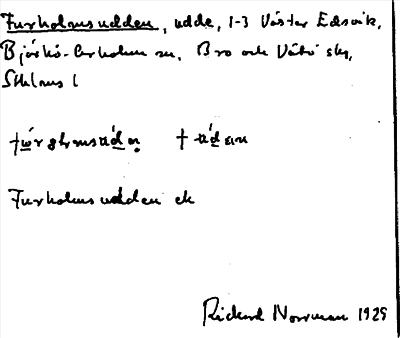 Furholmsudden, udde, 1-3 Väster Edsvik,
Björkö-Arholma sn, Bro och Vätö skg,
Sthlms l
Furholmsudden ek
Rickard Norrman 1929